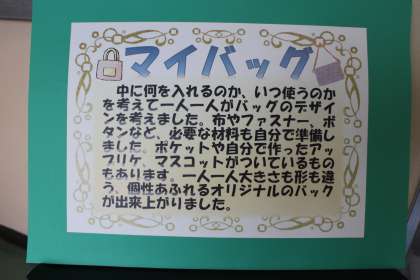 マイバッグ
中に何を入れるのか、いつ使うのか
を考えて一人一人がバッグのデザイ
ンを考えました。布やファスナー、ボ
タンなど、必要な材料も自分で準備し
ました。ポケットや自分で作ったアッ
プリケ、マスコットがついているもの
もあります。一人一人大きさも形も違
う、個性あふれるオリジナルのバッグ
が出来上がりました。